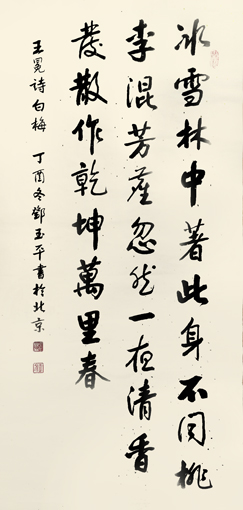 冰雪林中著此身不同桃
李混芳塵忽然一夜清香
發散作乾坤萬里春
王冕诗白梅 丁酉冬鄧玉平書於北京